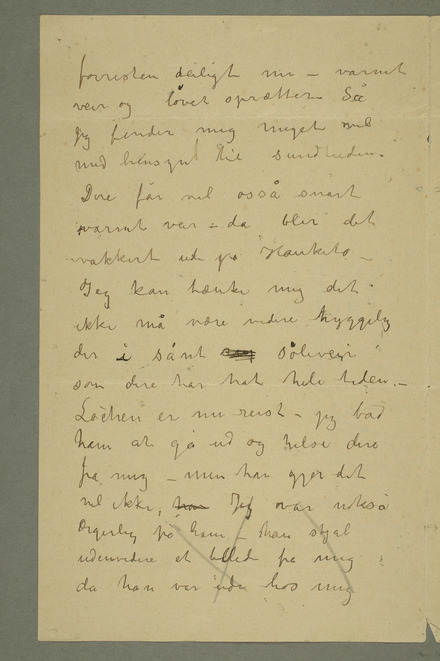 forresten deiligt nu – varmt
veir og løvet sprætter Så
jeg finder mig meget vel
med hensyn til sundheden.
Dere får vel osså snart
varmt veir – da blir det
vakkert ude på Hauketo –
Jeg kan tænke mig det
ikke må være videre hyggelig
der i sånt søleveir
som dere har hat hele tiden. –
Løchen er nu reist – jeg bad
ham at gå ud og hilse dere
fra mig – men han gjør det
vel ikke, han Jeg var også
ærgerlig på ham – han stjal
udenvidere et billed fra mig
da han var ude hos mig